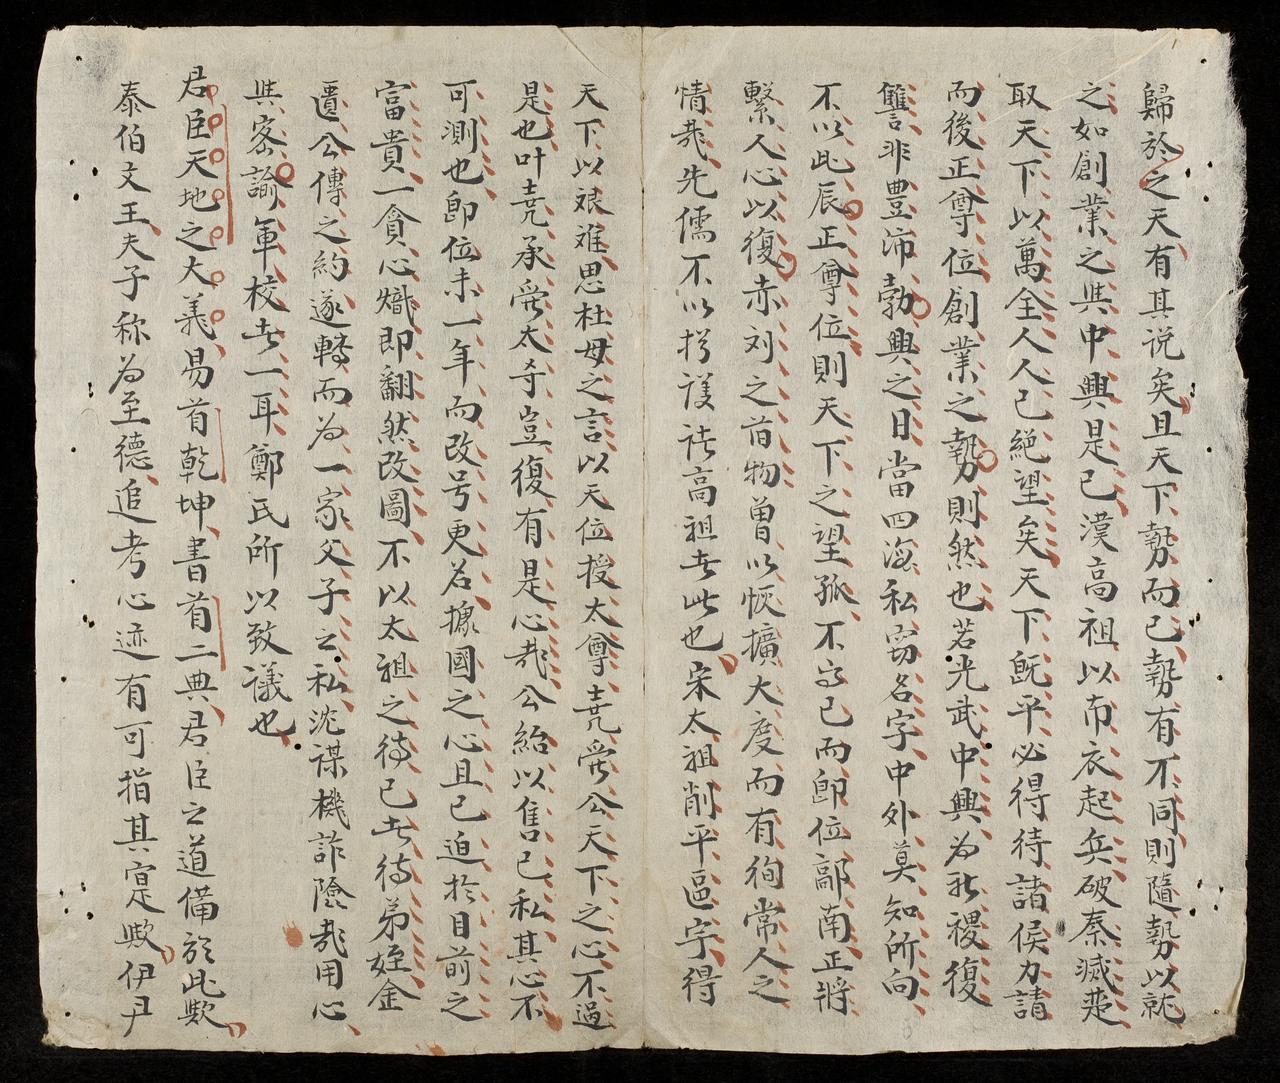 歸於之天有其说矣且天下勢而已勢有不同則隨勢以就
之如創業之與中興是已漢高祖以布衣起兵破秦滅楚
取天下以萬全人人已絕望矣天下既平必得待諸侯力請
而後正尊位創業之勢則然也若光武中興為社稷復
讐非豊沛勃興之日當四海私窃名字中外莫知所向
不以此辰正尊位則天下之望孤不已而即位鄗南正將
繫人心以復赤刘之旧物曾以恢擴大度而有徇常人之
情哉先儒不以於護訾高祖者此也宋太祖削平區宇得
天下以艱难思杜母之言以天位授太尊堯受公天下之心不過
是也叶堯承受太寺豈復有是心哉公紿以售已私其心不
可測也即位未一年而改号更名據國之心且已迫於目前之
富貴一貪心熾即翻然改圖不以太祖之待已者待弟姪金
匱公傳之約遂轉而为一家父子之私沈謀機詐陰哉用心
與密諭軍校者一耳鄭氏所以致議也
君臣天地之大義易首乾坤書首二典君臣之道備於此歟
泰伯文王夫子称为至德追考心迹有可指其寔歟伊尹